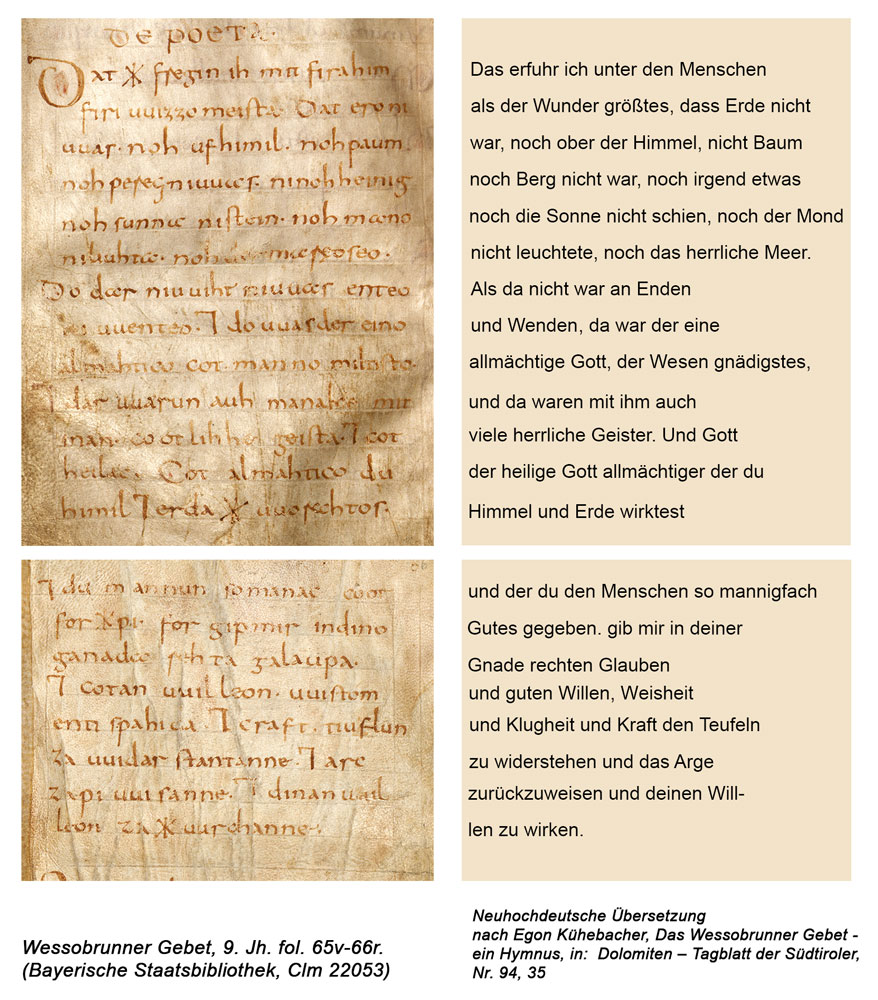 De poeta·
Dat * fregin ih mit firahim
firi uuizzo meista· Dat ero ni
uuas· noh ufhimil· noh paum
noh pereg ni uuas· ni noh heinig
noh sunna ni stein· noh mano
ni liuhta· noh der mareo seo·
Do dar niuuiht ni uuas enteo
ni uuenteo· ⁊ do uuas der eino
almahtico cot· manno miltisto·
⁊ dar uuarun auh manake mit
inan· cootlihhe geista· ⁊ cot
heilac· Cot almahtico du
himil ⁊ erda * uuorahtos·
⁊ du mannun so manac coot
for *pi· for gipmir indino
ganada rehta galaupa·
⁊ cotan uuilleon· uuistom
enti spahida· ⁊ craft· tiuflun
za uuidar stantanne· ⁊ arc
zapi uuisanne· ⁊ dinan uuil
leon za * uurchanne·
Wessobrunner Gebet, 9. Jh. fol. 65v-66r.
(Bayerische Staatsbibliothek, Clm 22053)
Das erfuhr ich unter den Menschen
als der Wunder größtes, dass Erde nicht
war, noch ober der Himmel, nicht Baum
noch Berg nicht war, noch irgend etwas
noch die Sonne nicht schien, noch der Mond
nicht leuchtete, noch das herrliche Meer.
Als da nicht war an Enden
und Wenden, da war der eine
allmächtige Gott, der Wesen gnädigstes,
und da waren mit ihm auch
viele herrliche Geister. Und Gott
der heilige Gott allmächtiger der du
Himmel und Erde wirktest
und der du den Menschen so mannigfach
Gutes gegeben. gib mir in deiner
Gnade rechten Glauben
und guten Willen, Weisheit
und Klugheit und Kraft den Teufeln
zu widerstehen und das Arge
zurückzuweisen und deinen Will-
len zu wirken.
Neuhochdeutsche Übersetzung
nach Egon Kühebacher, Das Wessobrunner Gebet -
ein Hymnus, in:  Dolomiten – Tagblatt der Südtiroler,
Nr. 94, 35